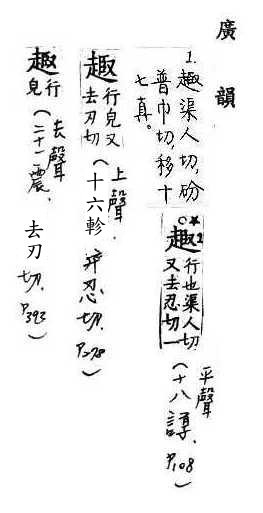 廣韻
1. 趣渠人切,砏
普巾切,移十
七真。
趣 行也渠人切
又去忍切一
(平聲
十八諄、P.108)
趣 行皃又
去刃切
(上聲.
十六軫.弃忍切.P.278)
趣 行
皃
(去聲
二十一震、去刃切.P.393)